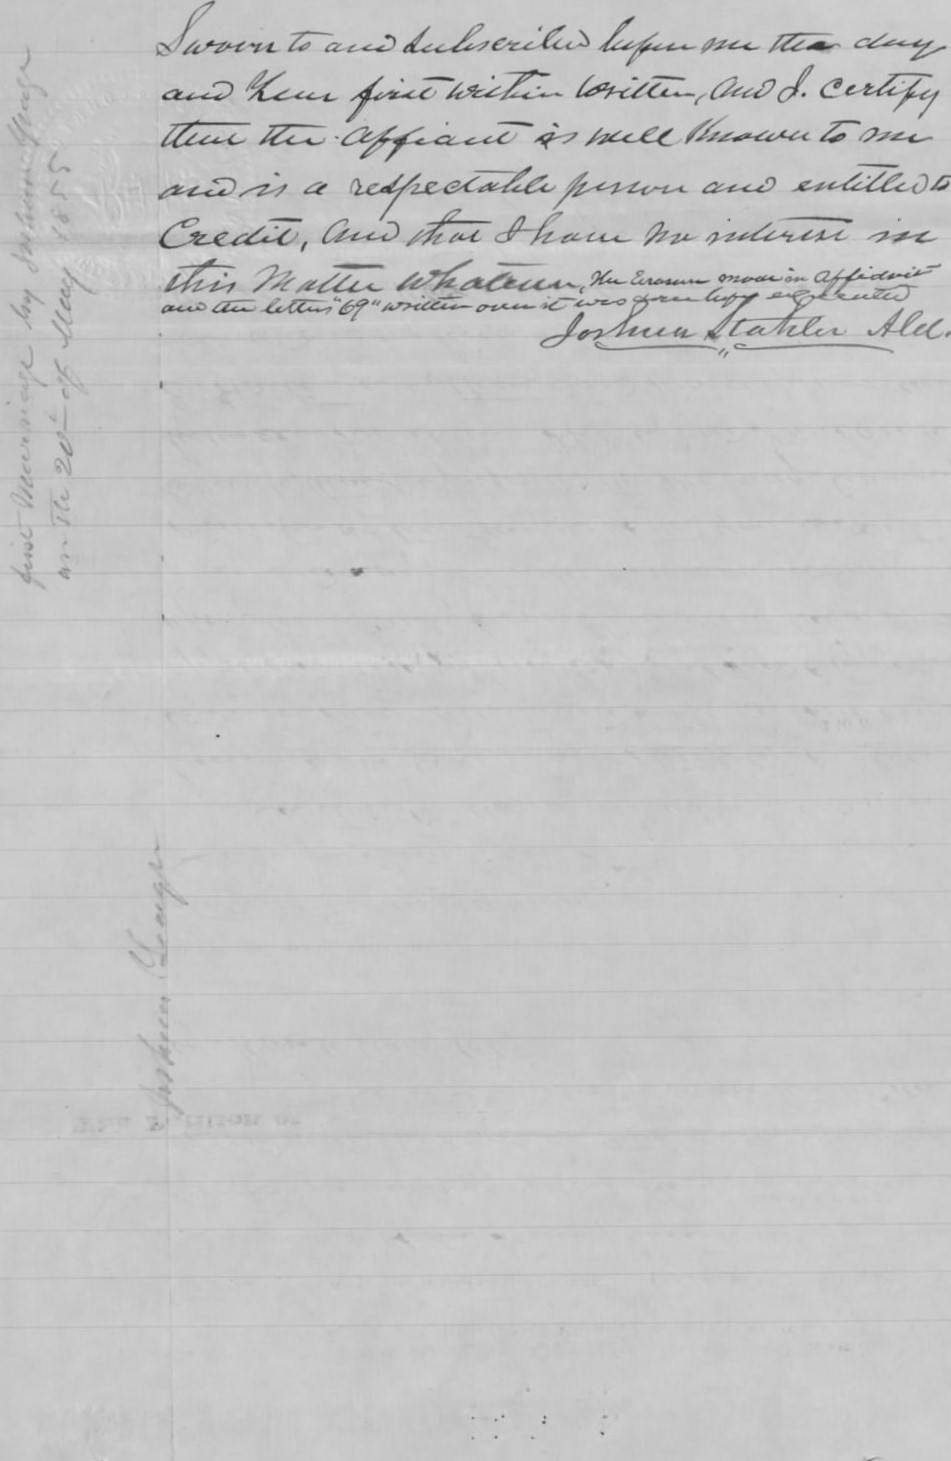 Sworn to and Subscribed before me the day
and Year first within written, and I. Certify
that the affiant is well Known to me
and is a respectable person and entitled to
Credit, and that I have no interest in
this Matter Whatever, the Erasure made in Affidavit
and the letters "69" written over it was before executed
Joshua Stahler Ald.
first Marriage by
on the 20th of May 1855
Joshua Yeager